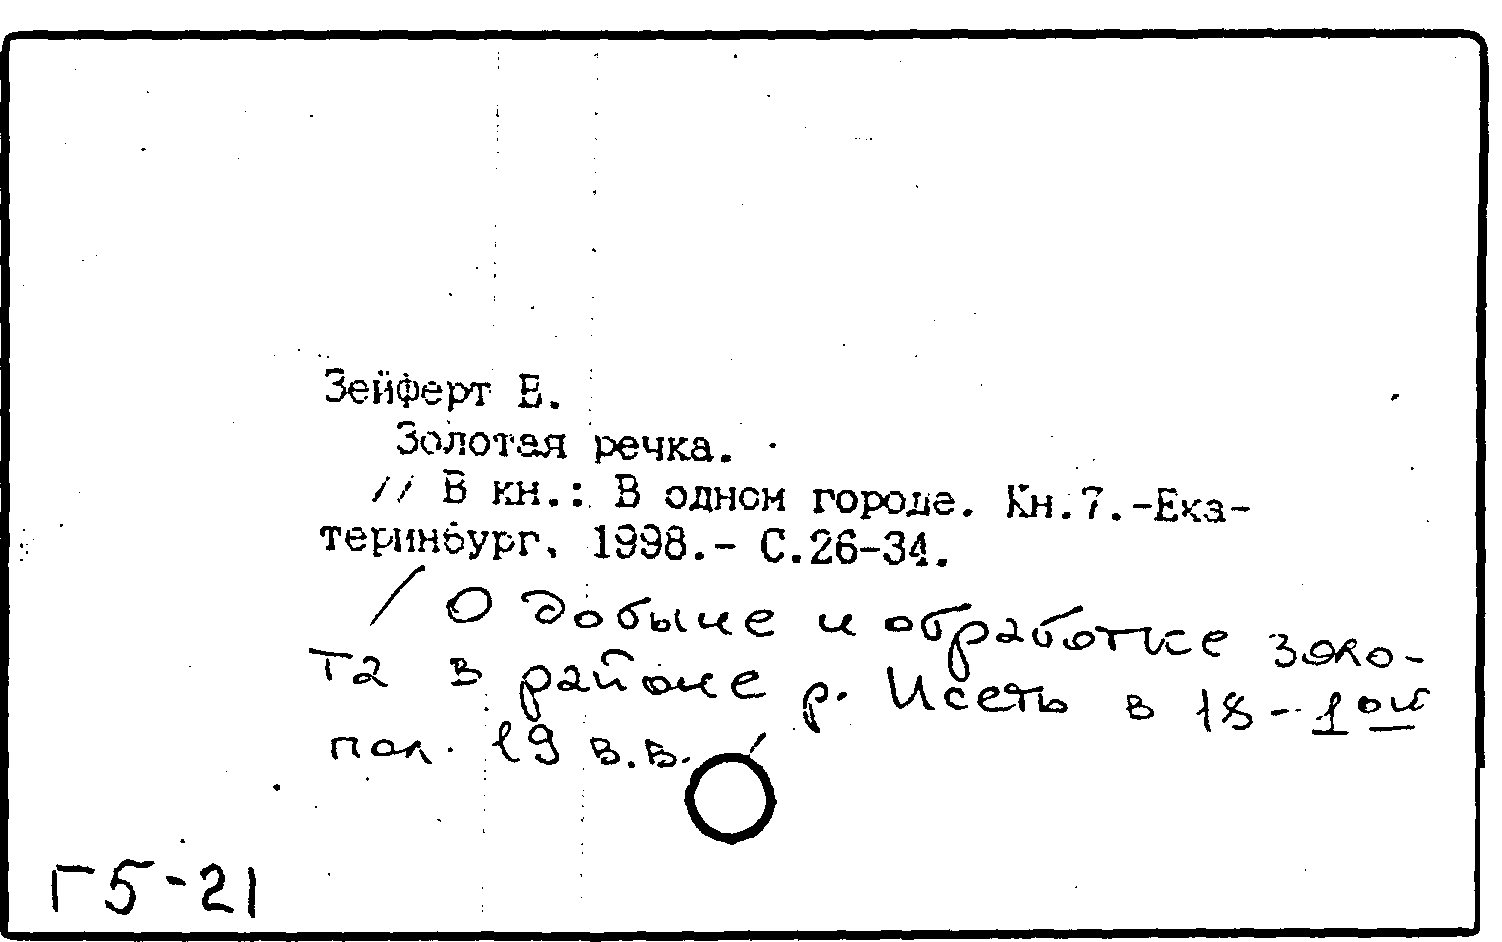 Зейферт В.
Золотая речка.
// В кн.: В одном городе. Кн.7.-Ека-
теринбург, 1998.- С.26-34.
/ О добыче и обработке золо-
та в районе р. Исеть в 18-1ой
пол. 19 в.в./
Г5-21